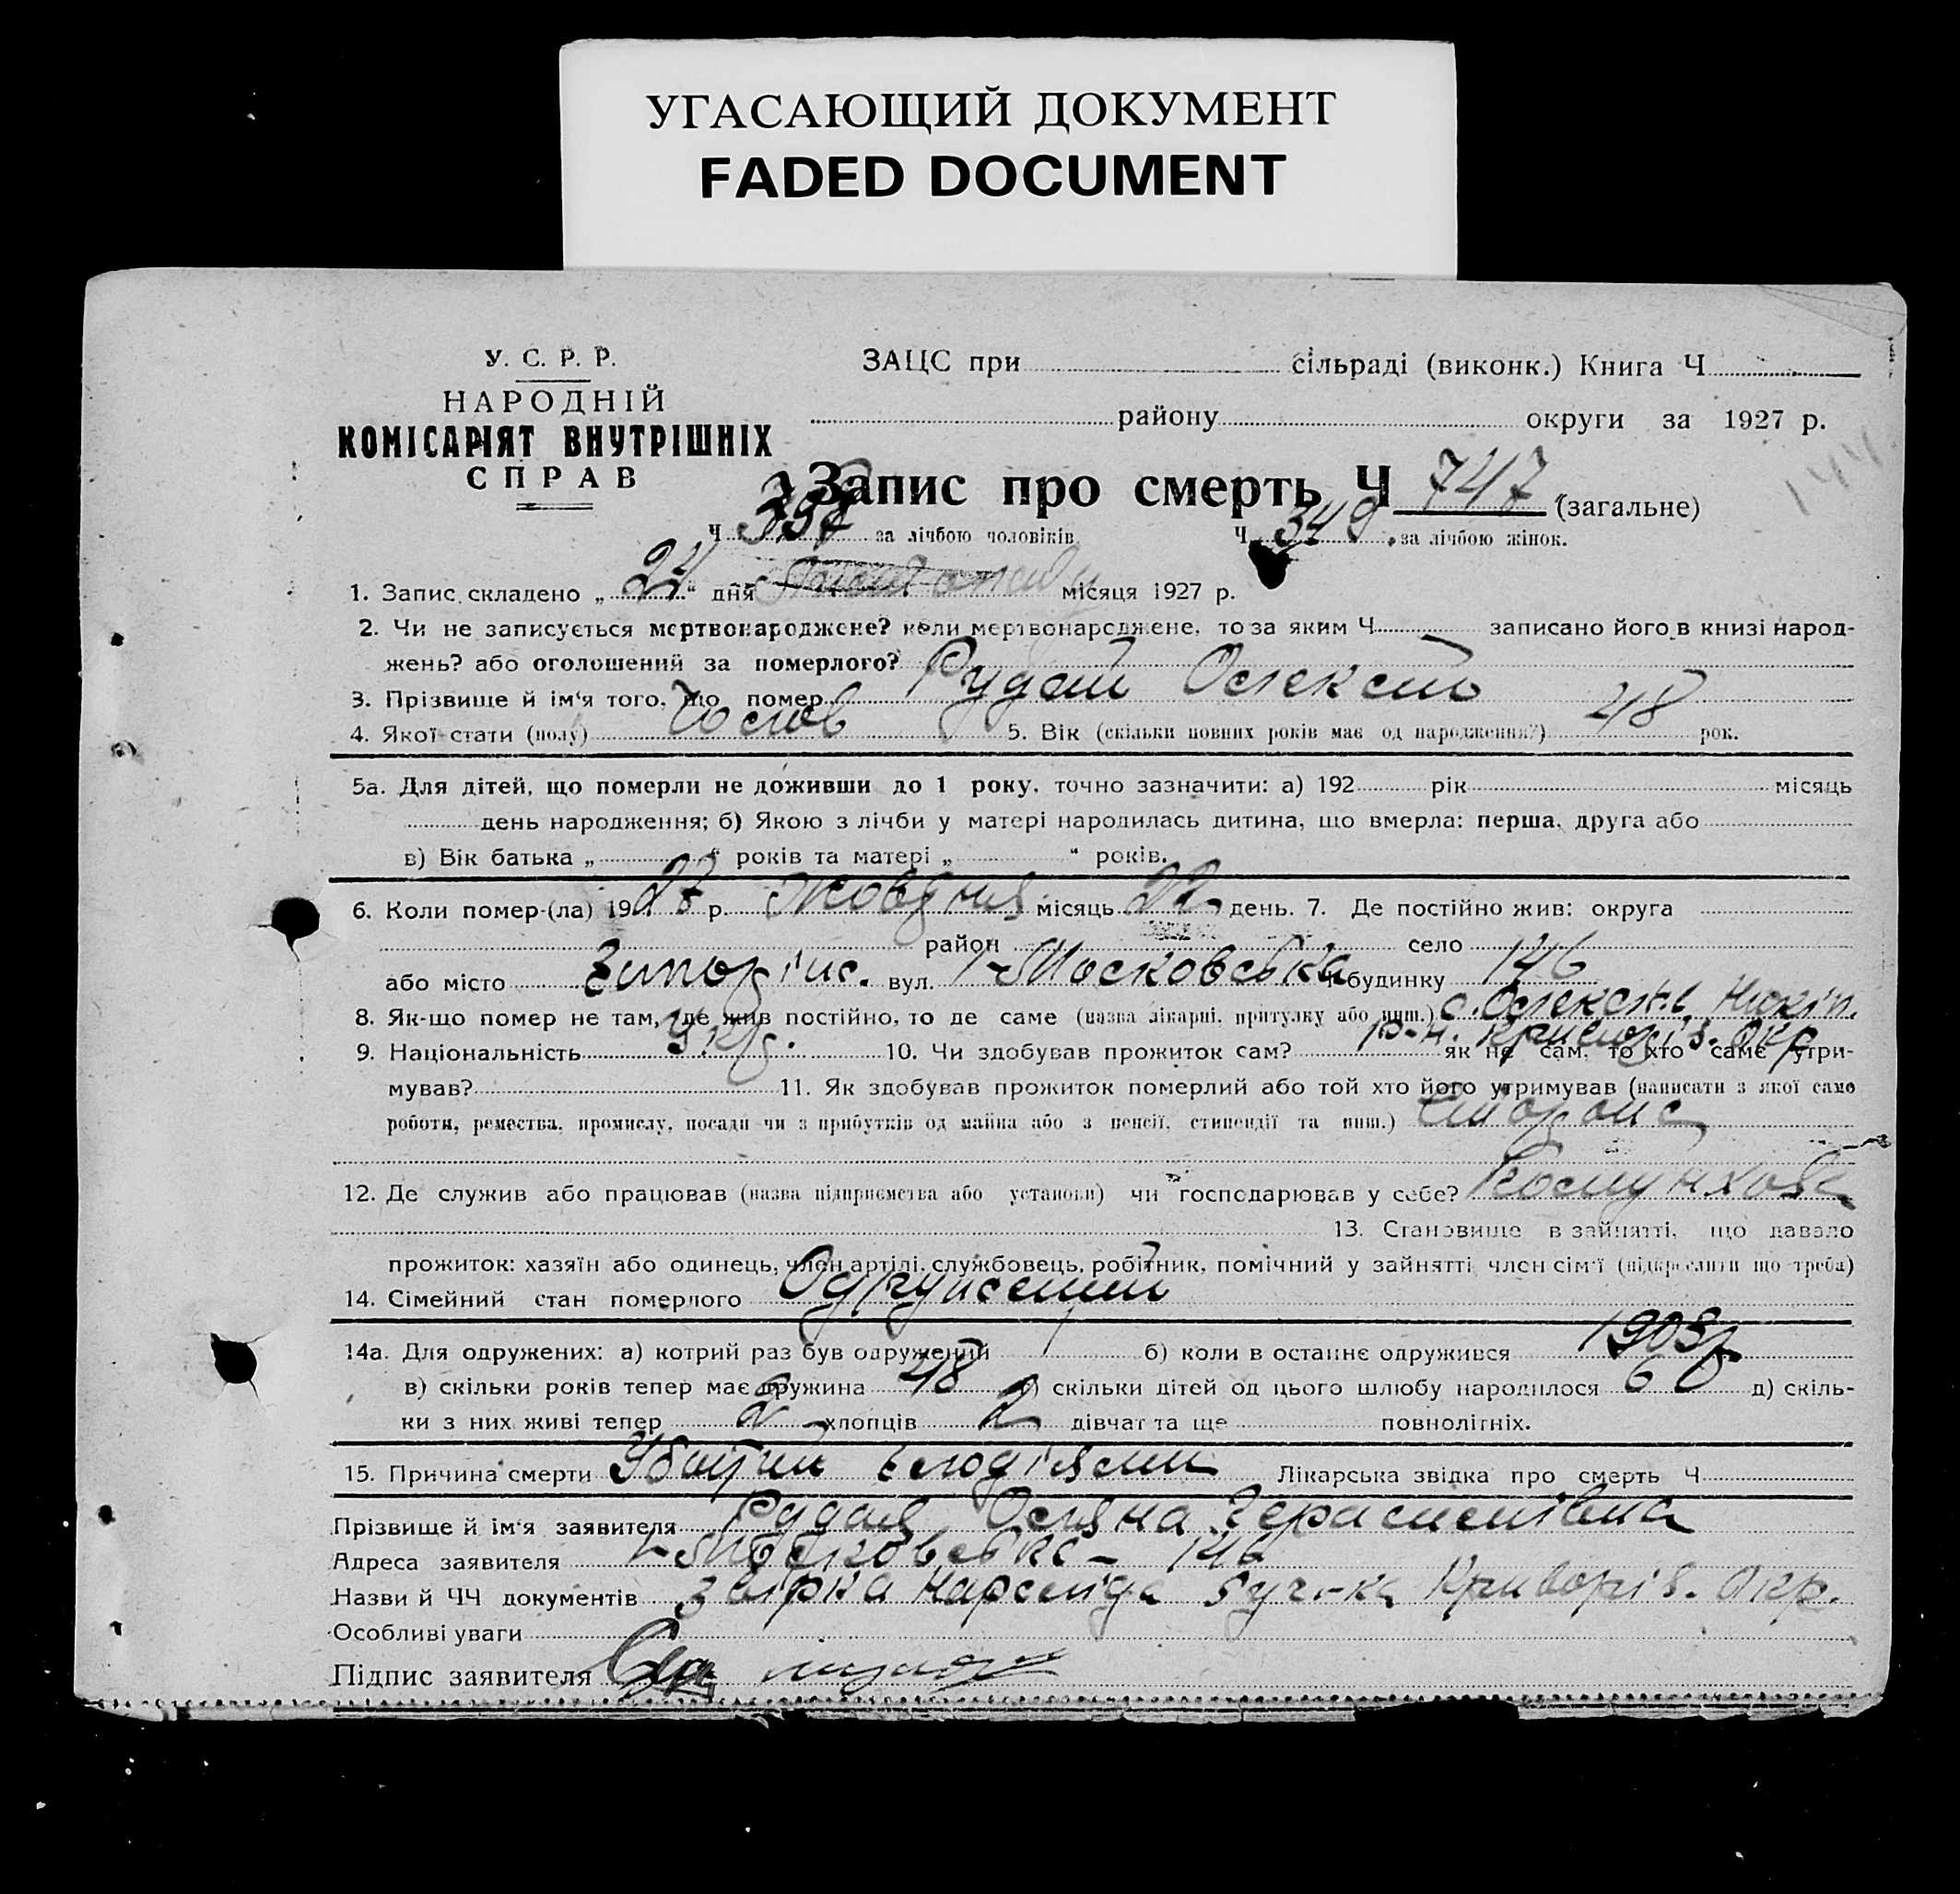 УГАСАЮЩИЙ ДОКУМЕНТ
FADED DOCUMENT
У. С. Р. Р.
НАРОДНІЙ
КОМІСАРІЯТ ВНУТРІШНІХ
СПРАВ
ЗАЦС при сільраді (виконк.) Книга Ч
району округи за 1927 р.
144
Запис про смерть Ч 747 (загальне)
Ч 398 за лічбою чоловіків Ч 349 за лічбою жінок.
1. Запис складено „24“ дня місяця 1927 р.
2. Чи не записується мертвонароджене? коли мертвонароджене, то за яким Ч записано його в книзі народ-
жень? або оголошений за померлого?
3. Прізвище й ім'я того, що помер Рудай Олексій
4. Якої стати (полу) Чолов 5. Вік (скільки повних років має од народження?) 48 рок.
5а. Для дітей, що померли не доживши до 1 року, точно зазначити: а) 192 рік місяць
день народження; б) Якою з лічби у матері народилась дитина, що вмерла: перша, друга або
в) Вік батька „ “ років та матері „ “ років.
6. Коли помер-(ла) 1927 р. Жовтня місяць 22 день. 7. Де постійно жив: округа
район село
або місто Запоріж. вул. І-Московська Ч будинку 146
8. Як-що помер не там, де жив постійно, то де саме (назва лікарні, притулку або инш.) с. Олексіїв. Нікіп.
р-н. Криворіз. Окр
9. Національність Укр. 10. Чи здобував прожиток сам? як не сам, то хто саме утри-
мував? 11. Як здобував прожиток померлий або той хто його утримував (написати з якої само
роботи, ремества, промислу, посади чи з прибутків од майна або з пенсії, стипендії та инш.) сторож
12. Де служив або працював (назва підприємства або установи) чи господарював у себе? Комунхоз
13. Становище в зайнятті, що давало
прожиток: хазяїн або одинець, член артілі, службовець, робітник, помічний у зайнятті член сім'ї (підкреслити що треба)
14. Сімейний стан померлого Одружений
14а. Для одружених: а) котрий раз був одружений 1 б) коли в останнє одружився 1903р
в) скільки років тепер має дружина 48 г) скільки дітей од цього шлюбу народилося 6 д) скіль-
ки з них живі тепер 2 хлопців 2 дівчат та ще повнолітніх.
15. Причина смерти Убитий злодіями Лікарська звідка про смерть Ч
Прізвище й ім'я заявителя Рудая Уляна Герасимівна
Адреса заявителя І-Московська - 146
Назви й ЧЧ документів Нарсуда 5 уч-ка Криворіз. Окр.
Особливі уваги
Підпис заявителя